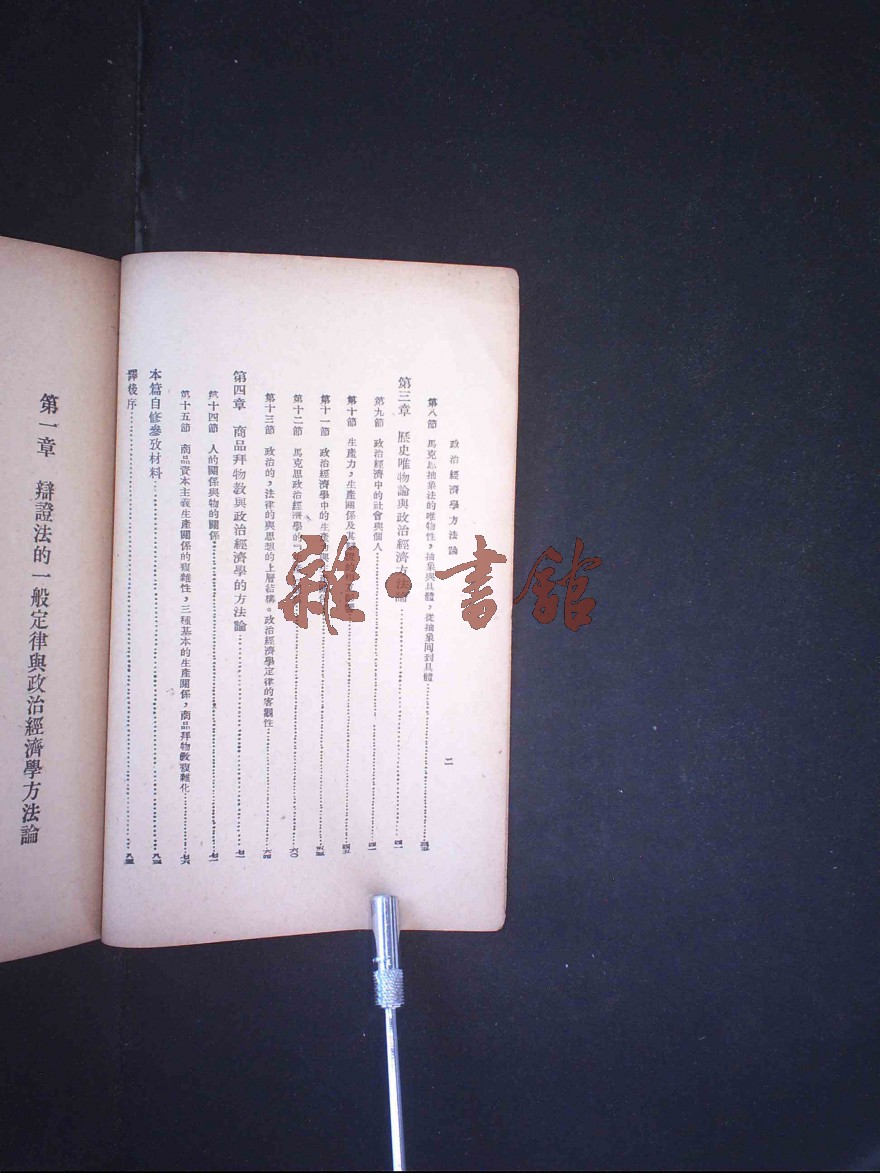 政治經濟學方法論
二
第八節 馬克思抽象法的唯物性，抽象與具體，從抽象回到具體
第三章 歷史唯物論與政治經濟方法論 四一
第九節 政治經濟中的社會與個人 四一
第十節 生產力，生產關係及其
第十一節 政治經濟學中的生產力與
第十二節 馬克思政治經濟學的 六〇
第十三節 政治的，法律的與思想的上層結構。政治經濟學定律的客觀性 六四
第四章 商品拜物教與政治經濟學的方法論 七一
第十四節 人的關係與物的關係 七一
第十五節 商品資本主義生產關係的複雜性，三種基本的生產關係，商品拜物教複雜化 七六
本篇自修參攷材料
譯後序
第一章 辯證法的一般定律與政治經濟學方法論
雜·書館